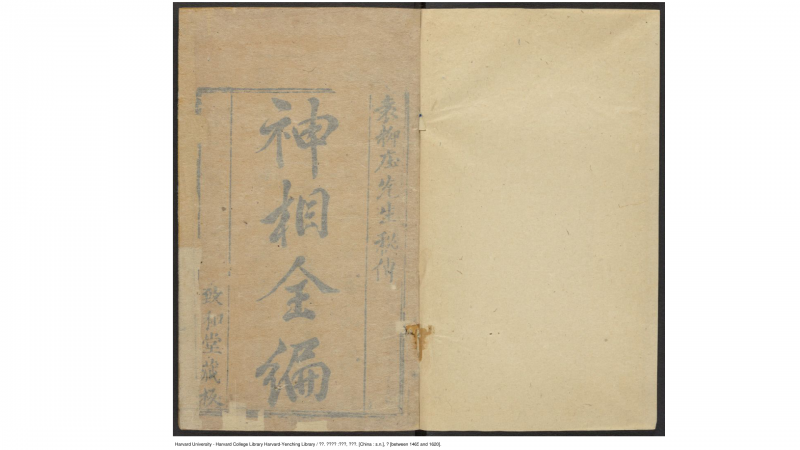 袁柳庄先生秘傳
神相全編
致和堂藏板
Harvard University - Harvard College Library Harvard-Yenching Library / ??. ???? :???, ???. [China : s.n.], ? [between 1465 and 1620].